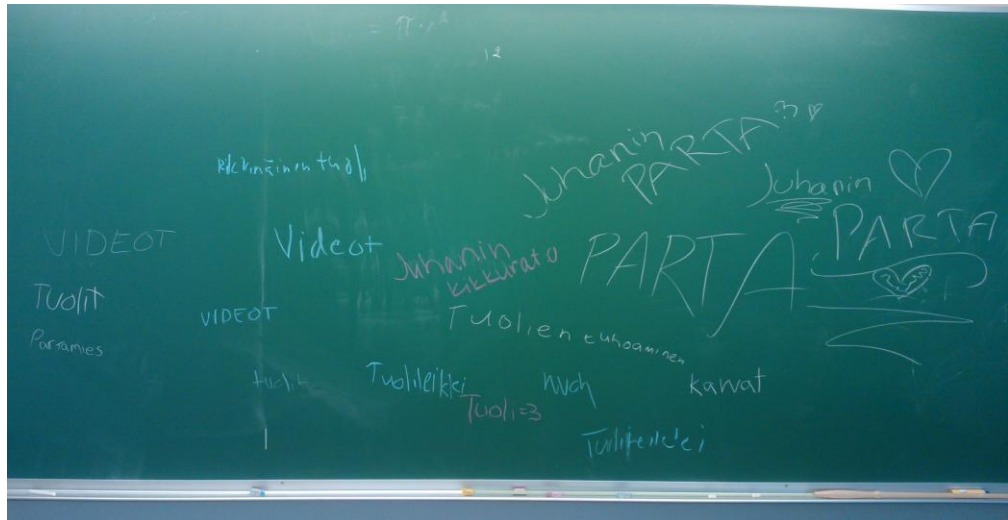 = π · r²
12
Juhanin
PARTA :3 ♡
Juhanin
PARTA
Videot
VIDEOT
Juhanin
kikkurato
PARTA
Tuolit
VIDEOT
Tuolien tuhoaminen
Partamies
tuolit
Tuolileikki
karvat
Tuoli=3